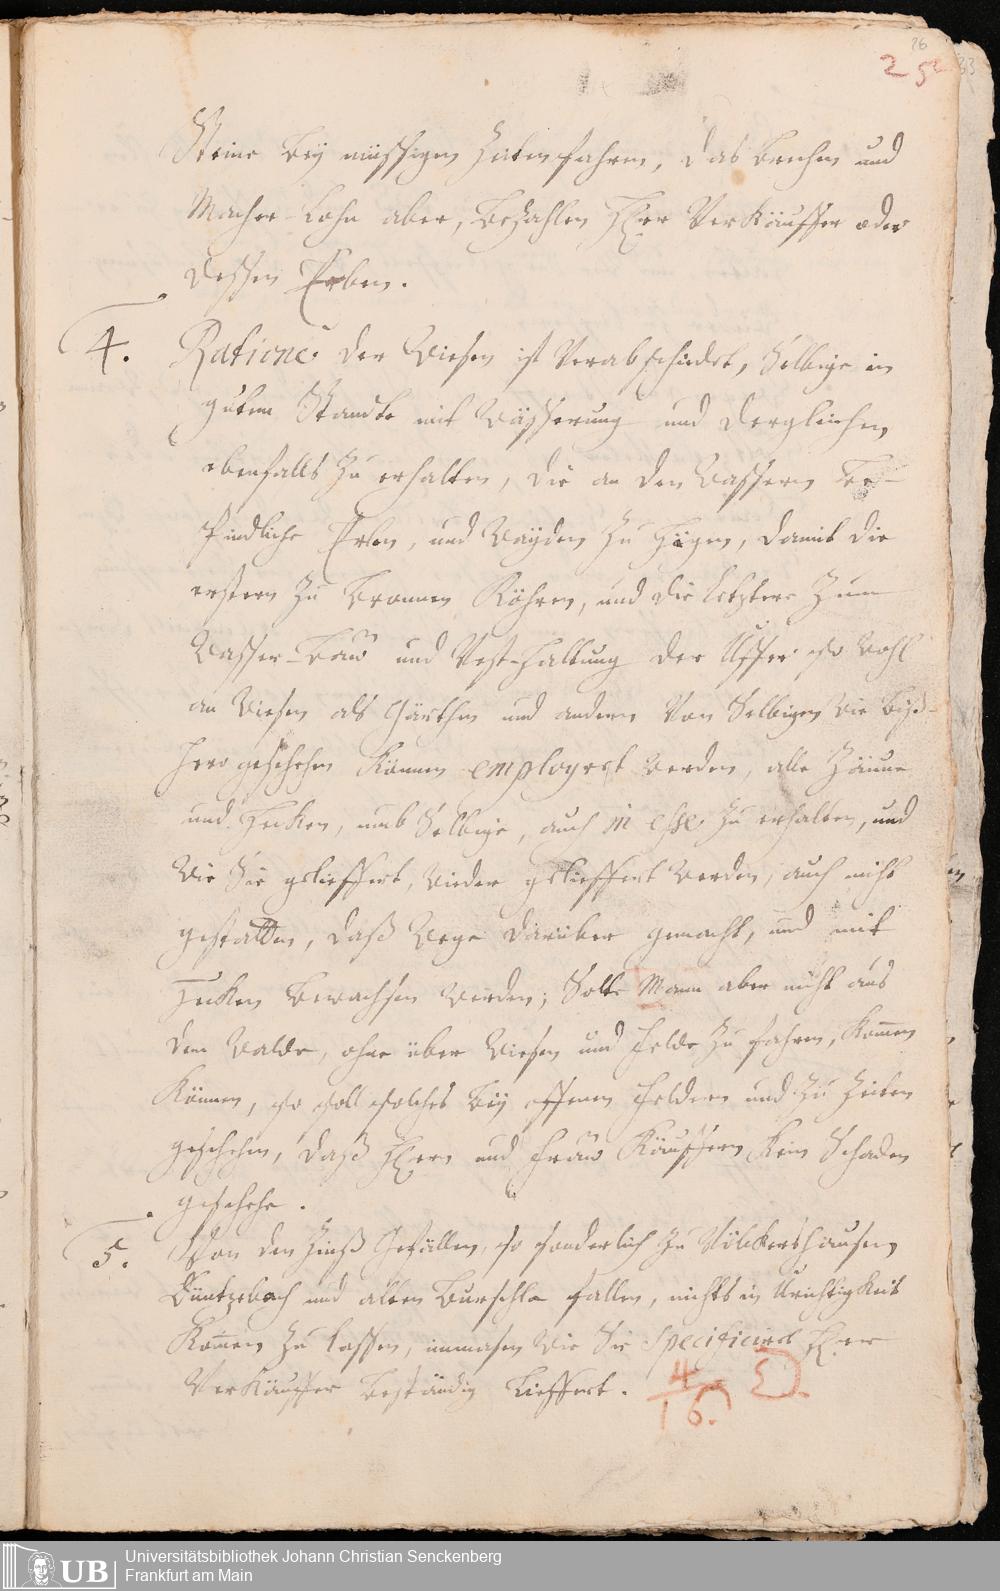 26
25
33
Steine bey müssigen Zeiten fahren, das brechen und
Macher-Lohn aber, bezahlen Herr Verkäuffer oder
dessen Erben.
4. Ratione der Wiesen ist verabschiedet, Selbige in
gutem Standte mit Wässerung und dergleichen
ebenfalls zu erhalten, die an den Wassern be-
findliche Erlen, und Weyden zu hegen, damit die
erstern zu Bronnen Röhren, und die letztere zum
Wasser-Bau und Vest-haltung der Uffer so wohl
an Wiesen als Gärthen und andern von Selbigen wie biß-
hero geschehen können employret werden, alle Zäune
und Hecken, umb Selbige, auch in esse zu erhalten, und
wie Sie geliefert, wieder geliefert werden, auch nicht
gestatten, daß Wege darüber gemacht, und mit
Hecken bewachsen werden; Solte Mann aber nicht aus
dem Walde, ohne über Wiesen und Felde zu fahren, kommen
können, so soll solches bey offenen Feldern und zu Zeiten
geschehen, daß Herrn und Frau Käuffern kein Schaden
geschehe.
5. Von den Zinß Gefällen, so sonderlich zu Völckershausen
Düntzebach und alten Burschla fallen, nichts in Unrichtigkeit
kommen zu lassen, immasen wie Sie Specificirt Herr
Verkäuffer beständig liefert.
4
16.
Universitätsbibliothek Johann Christian Senckenberg
Frankfurt am Main
UB